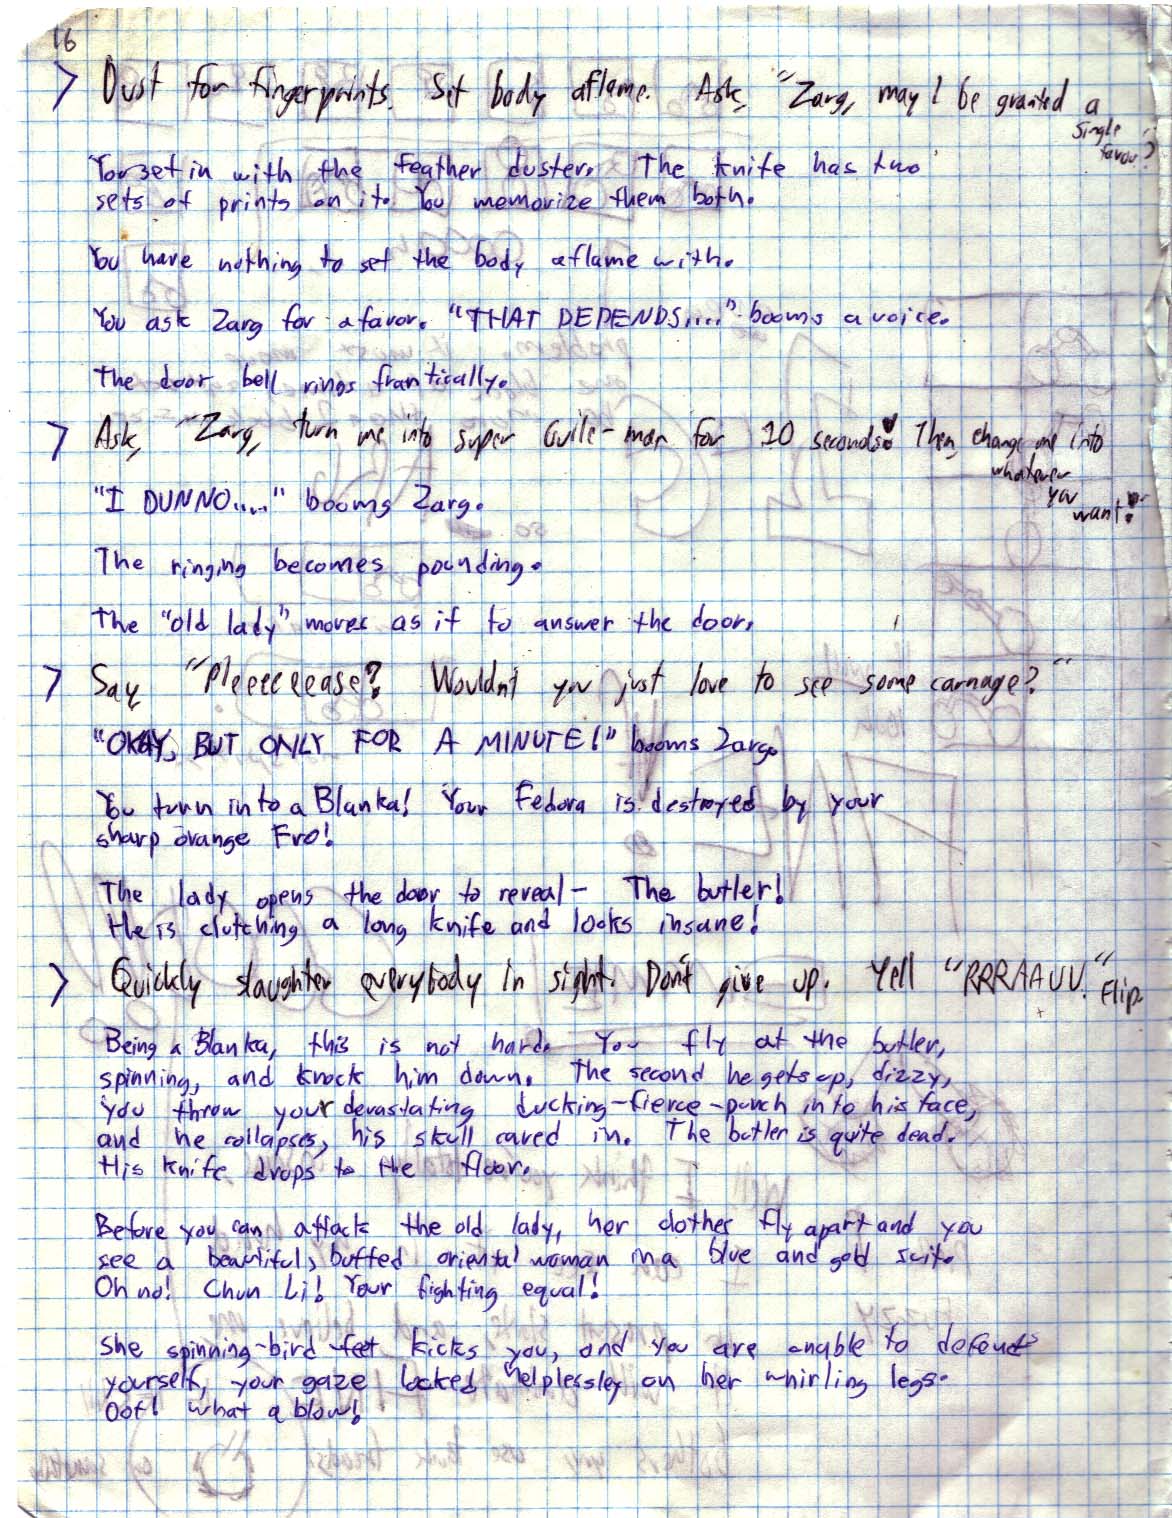 16
> Dust for fingerprints. Set body aflame. Ask, "Zarg, may I be granted a
single
favour?"
You set in with the feather duster. The knife has two
sets of prints on it. You memorize them both.
You have nothing to set the body aflame with.
You ask Zarg for a favor. "THAT DEPENDS...." booms a voice.
The door bell rings frantically.
> Ask, "Zarg, turn me into super Guile-man for 10 seconds! Then, change me into
whatever
you
want!"
"I DUNNO....." booms Zarg.
The ringing becomes pounding.
The "old lady" moves as if to answer the door.
> Say "Pleeeeeease? Wouldn't you just love to see some carnage?"
"OKAY, BUT ONLY FOR A MINUTE!" booms Zarg.
You turn into a Blanka! Your Fedora is destroyed by your
sharp orange Fro!
The lady opens the door to reveal - The butler!
He is clutching a long knife and looks insane!
> Quickly slaughter everybody in sight. Don't give up. Yell "RRRAAUU." Flip.
Being a Blanka, this is not hard. You fly at the butler,
spinning, and knock him down. The second he gets up, dizzy,
you throw your devastating ducking-fierce-punch into his face,
and he collapses, his skull caved in. The butler is quite dead.
His knife drops to the floor.
Before you can attack the old lady, her clothes fly apart and you
see a beautiful, buffed oriental woman in a blue and gold suit.
Oh no! Chun Li! Your fighting equal!
She spinning-bird-feet kicks you, and you are unable to defend
yourself, your gaze locked helplessley on her whirling legs.
Oof! What a blow!